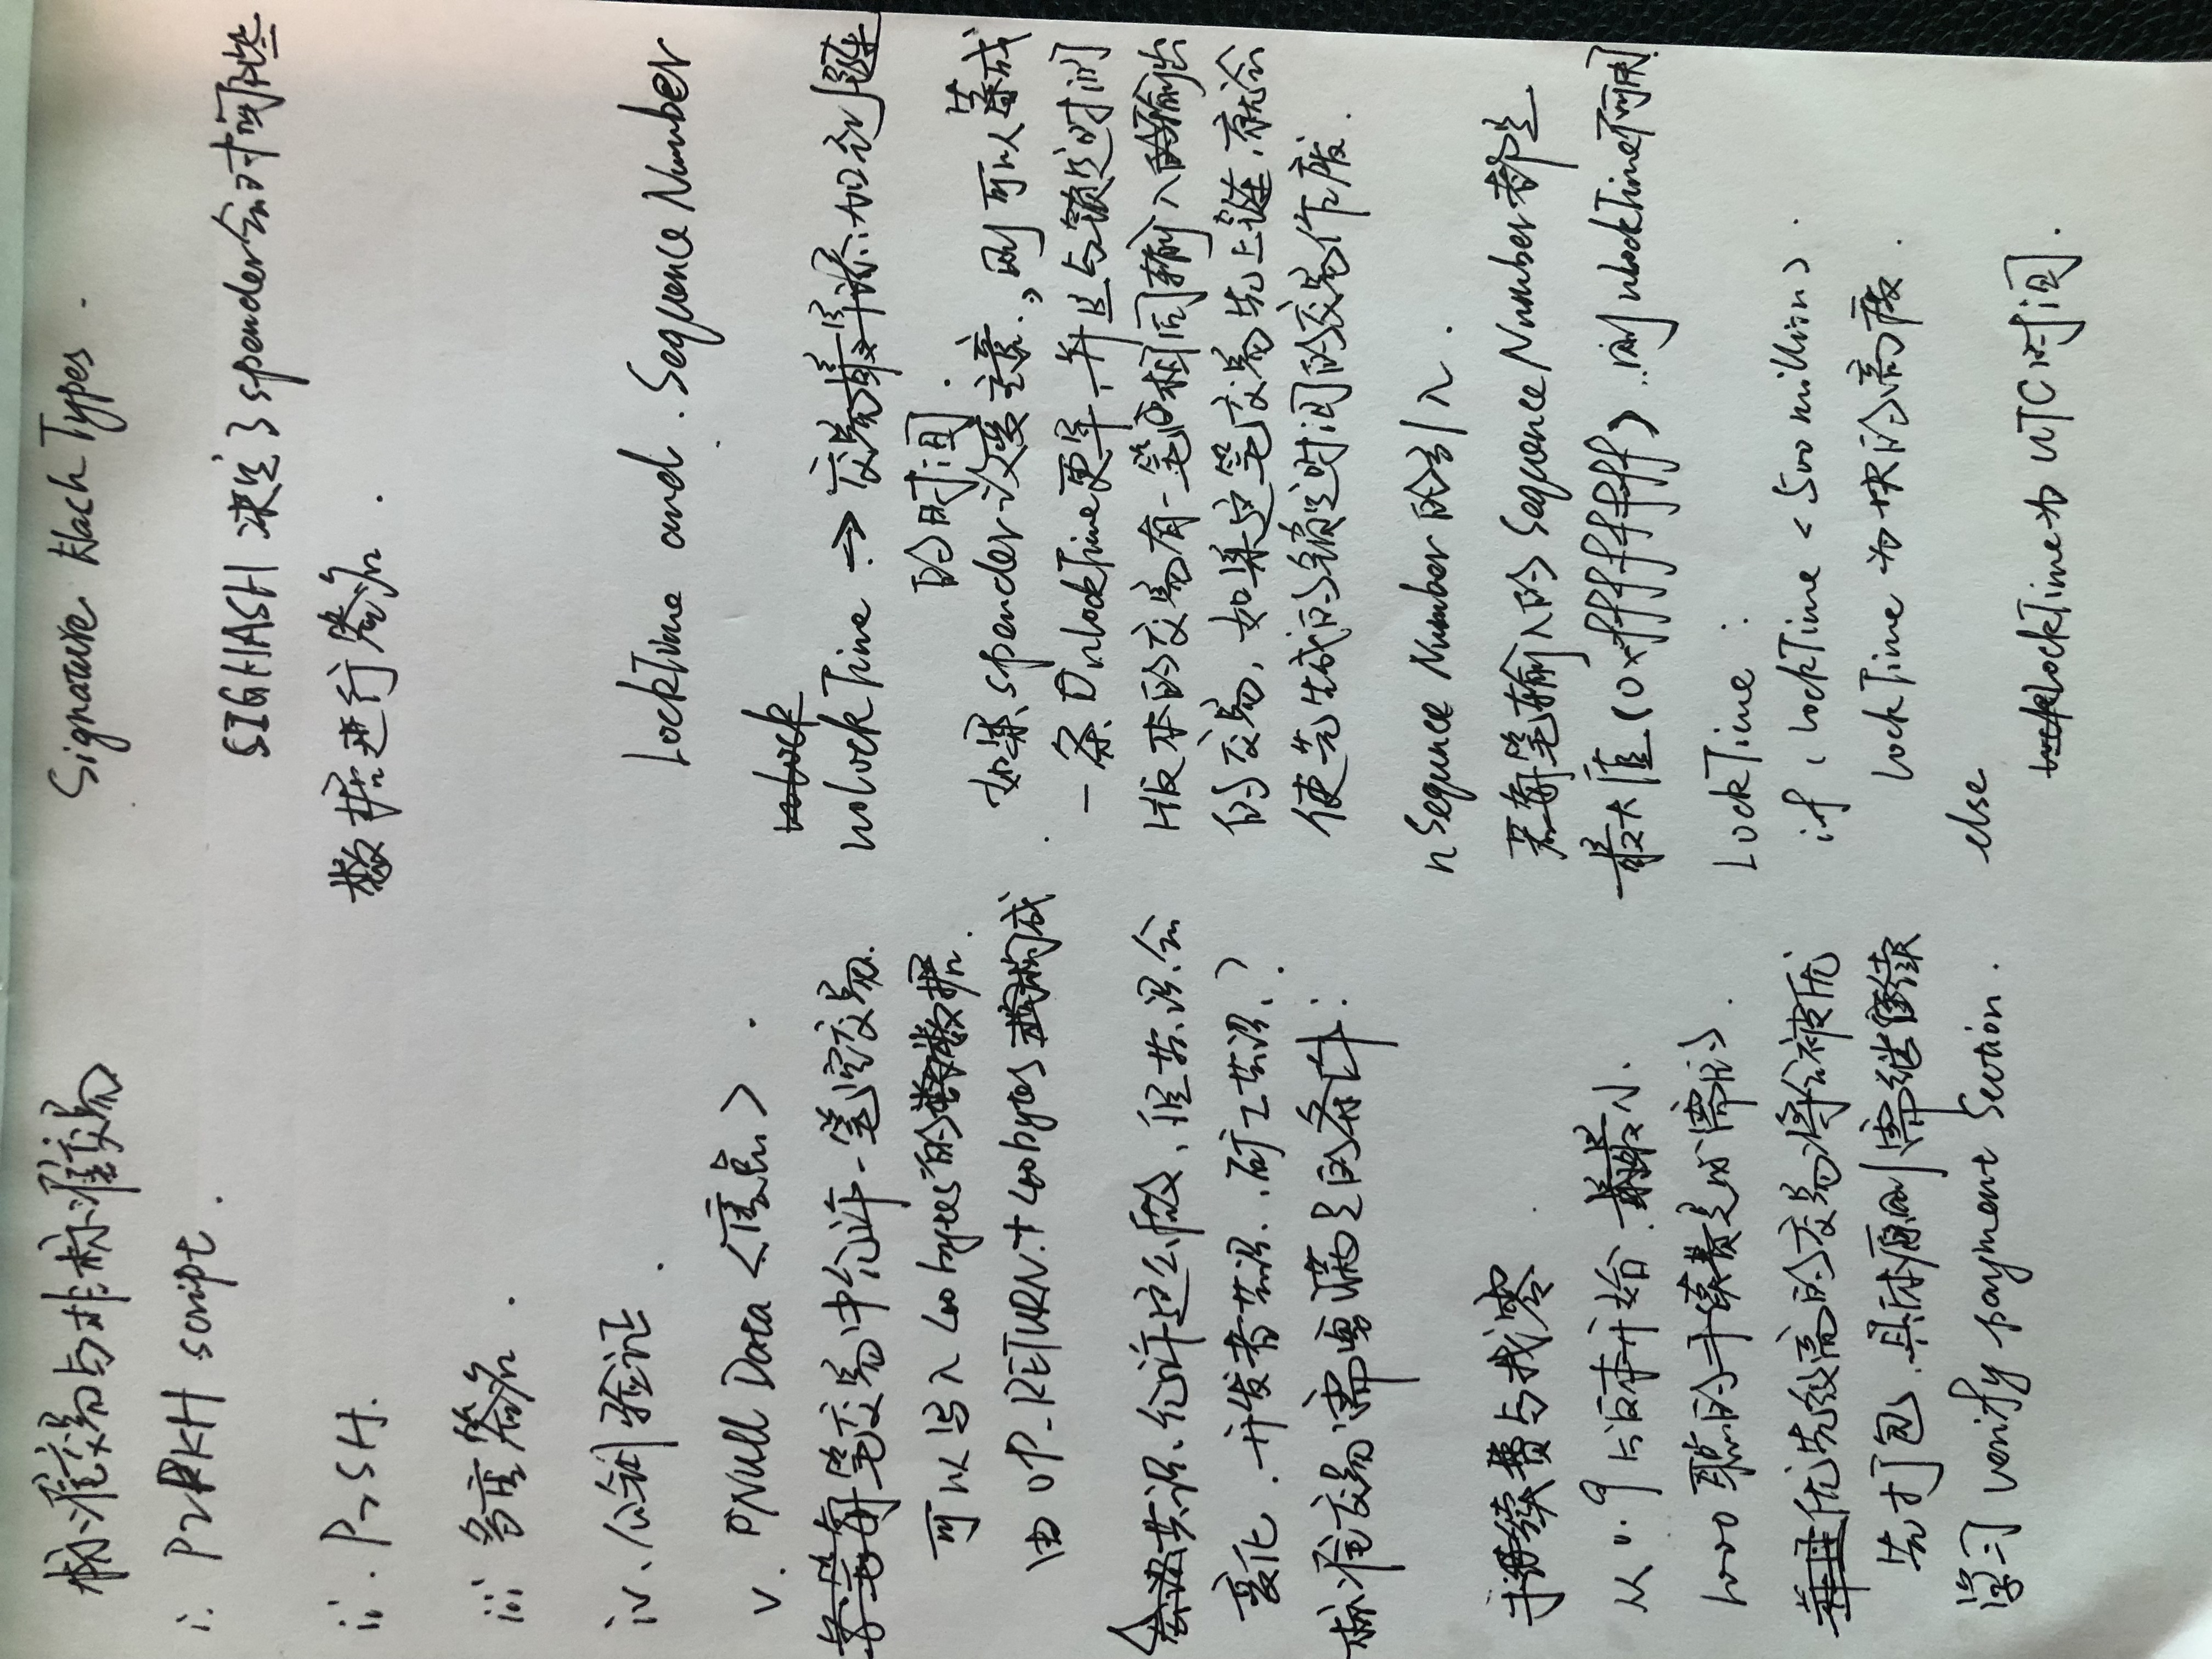 标准交易与非标准交易
i. P2PKH script.
ii. P2SH.
iii 多重签名.
iv. 公钥验证.
v. Null Data <重点>.
每笔交易中允许一笔空交易.
可以写入40bytes的数据.
由 OP_RETURN + 40bytes 构成
共识允许这么做, 但共识会
变化. 开发者共识. 矿工共识?
标准交易需要满足的条件:
手续费与找零
从0.9版本开始. 最小.
1000聪的手续费是必需的.
优先级高的交易将会被优
先打包. 具体原则需继续
学习 verify payment Section.
Signature Hash Types.
SIGHASH 决定了spender会对哪些
数据进行签名.
LockTime and. Sequence Number
nolockTime → 交易最早添加到链
的时间.
如果spender改变主意., 则可以生成
一条nlockTime更早, 并且与锁定时间
版本的交易有一笔相同输入输出
的交易, 如果这笔交易先上链, 就会
使先生成的锁定时间的交易作废.
nSequnce Number 的引入.
若每笔输入的 Sequence Number 都是
最大值 (0xffffffff) .. 则 nlockTime不可用.
LockTime :
if (lockTime < 500 million).
lockTime 为块的高度.
else
lockTime为 UTC 时间.